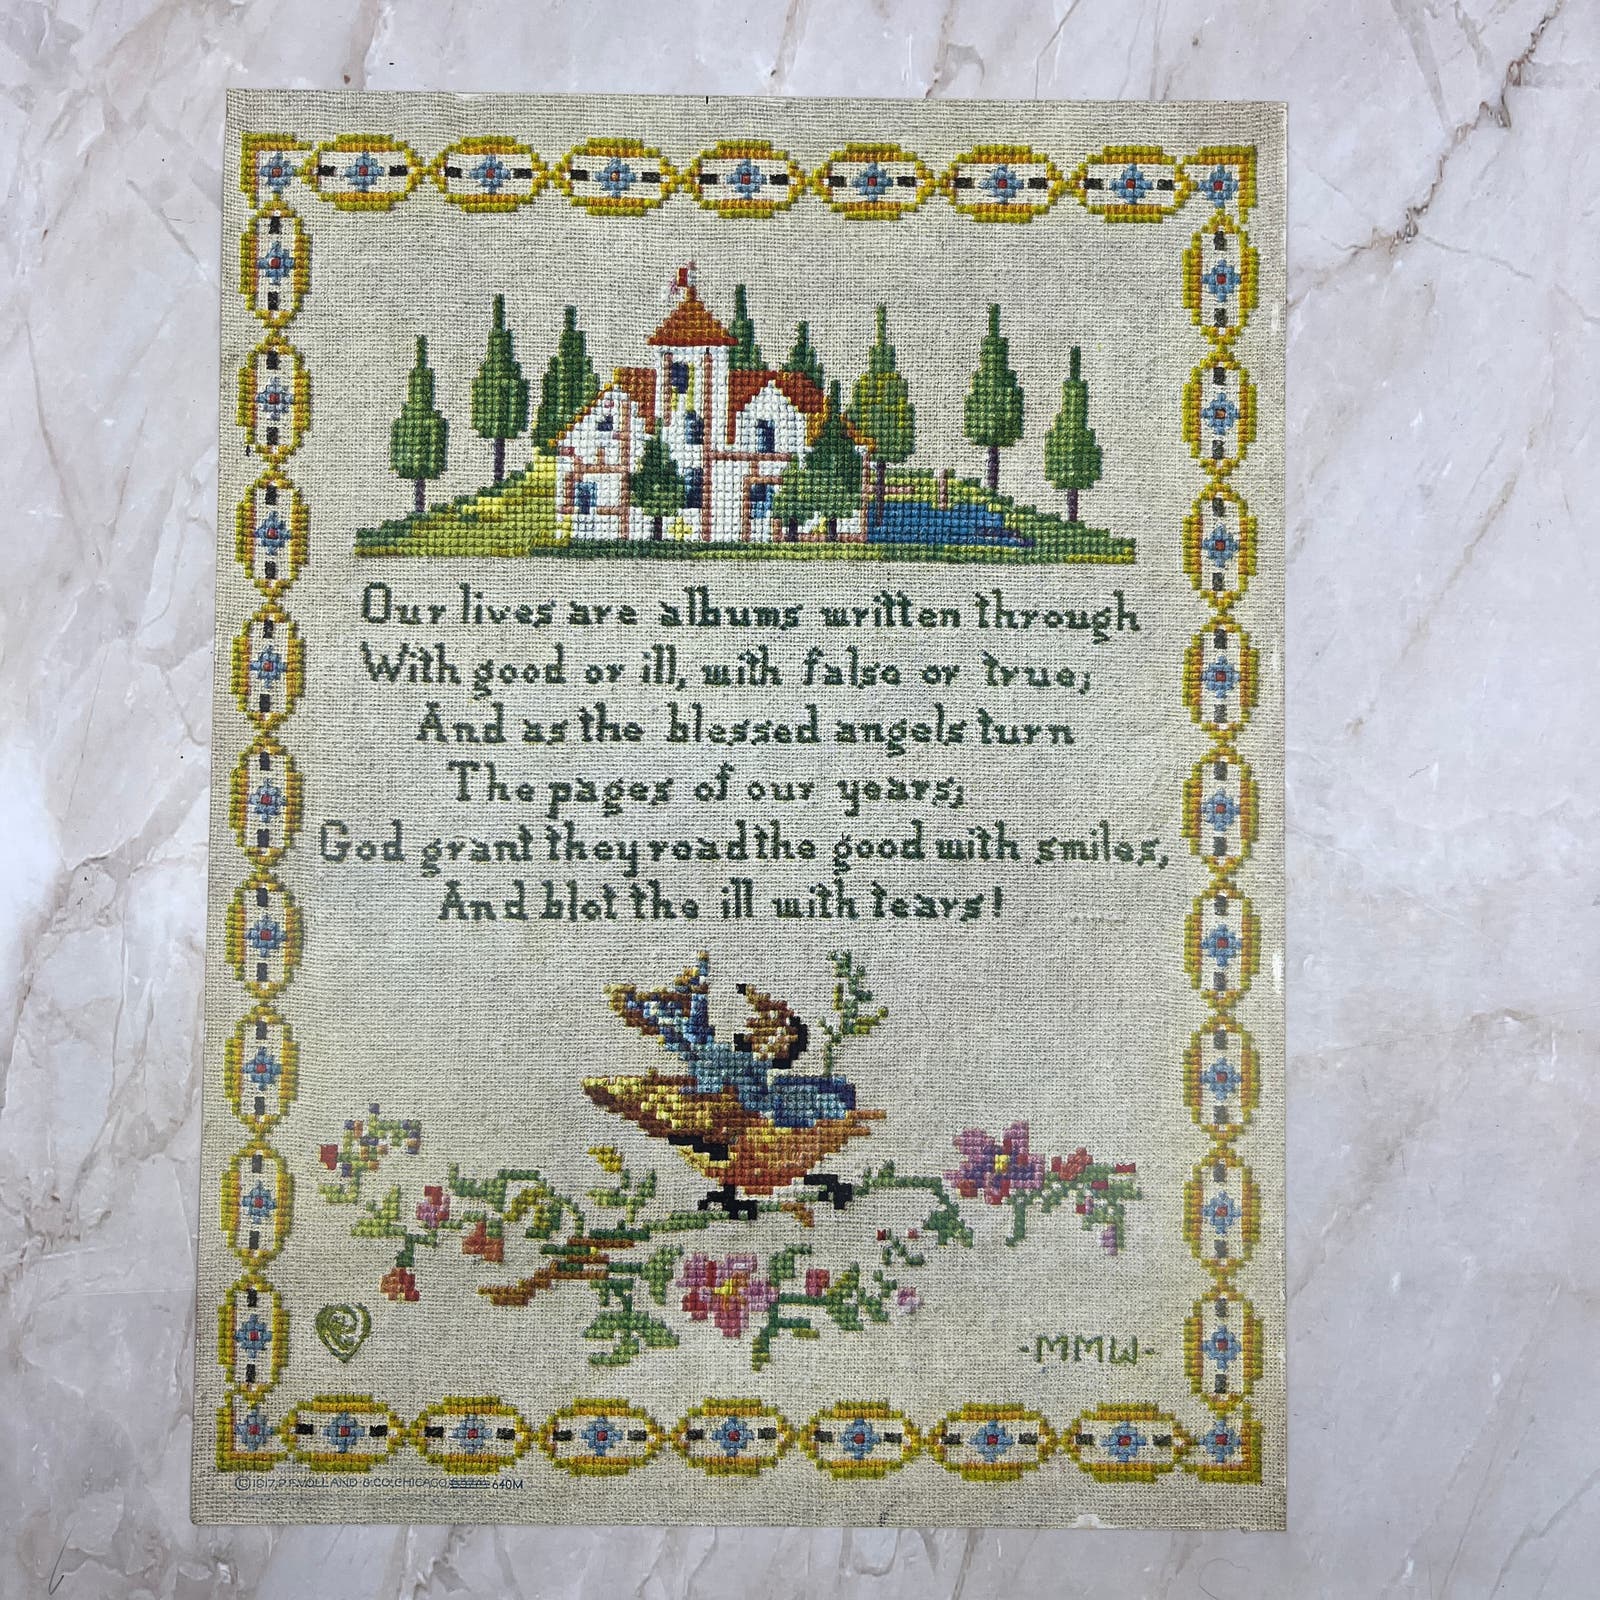 Our lives are albums written through
With good or ill, with false or true;
And as the blessed angels turn
The pages of our years;
God grant they read the good with smiles,
And blot the ill with tears!
-MMW-
©1917, P.F. VOLLAND & CO. CHICAGO 640M